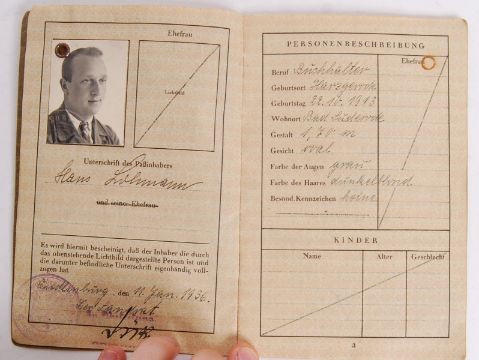 Ehefrau
Lichtbild
Unterschrift des Paßinhabers
Hans Lohmann
und seiner Ehefrau
Es wird hiermit bescheinigt, daß der Inhaber die durch
das obenstehende Lichtbild dargestellte Person ist und
die darunter befindliche Unterschrift eigenhändig voll-
zogen hat
Quedlinburg, den 10. Jan. 1936.
Der Landrat
PERSONENBESCHREIBUNG
Ehefrau
Beruf Buchhalter
Geburtsort Harzgerode
Geburtstag 22.10.1913
Wohnort Bad Suderode
Gestalt 1,70 m
Gesicht oval
Farbe der Augen grau
Farbe des Haares dunkelblond
Besond. Kennzeichen keine
KINDER
Name Alter Geschlecht
3